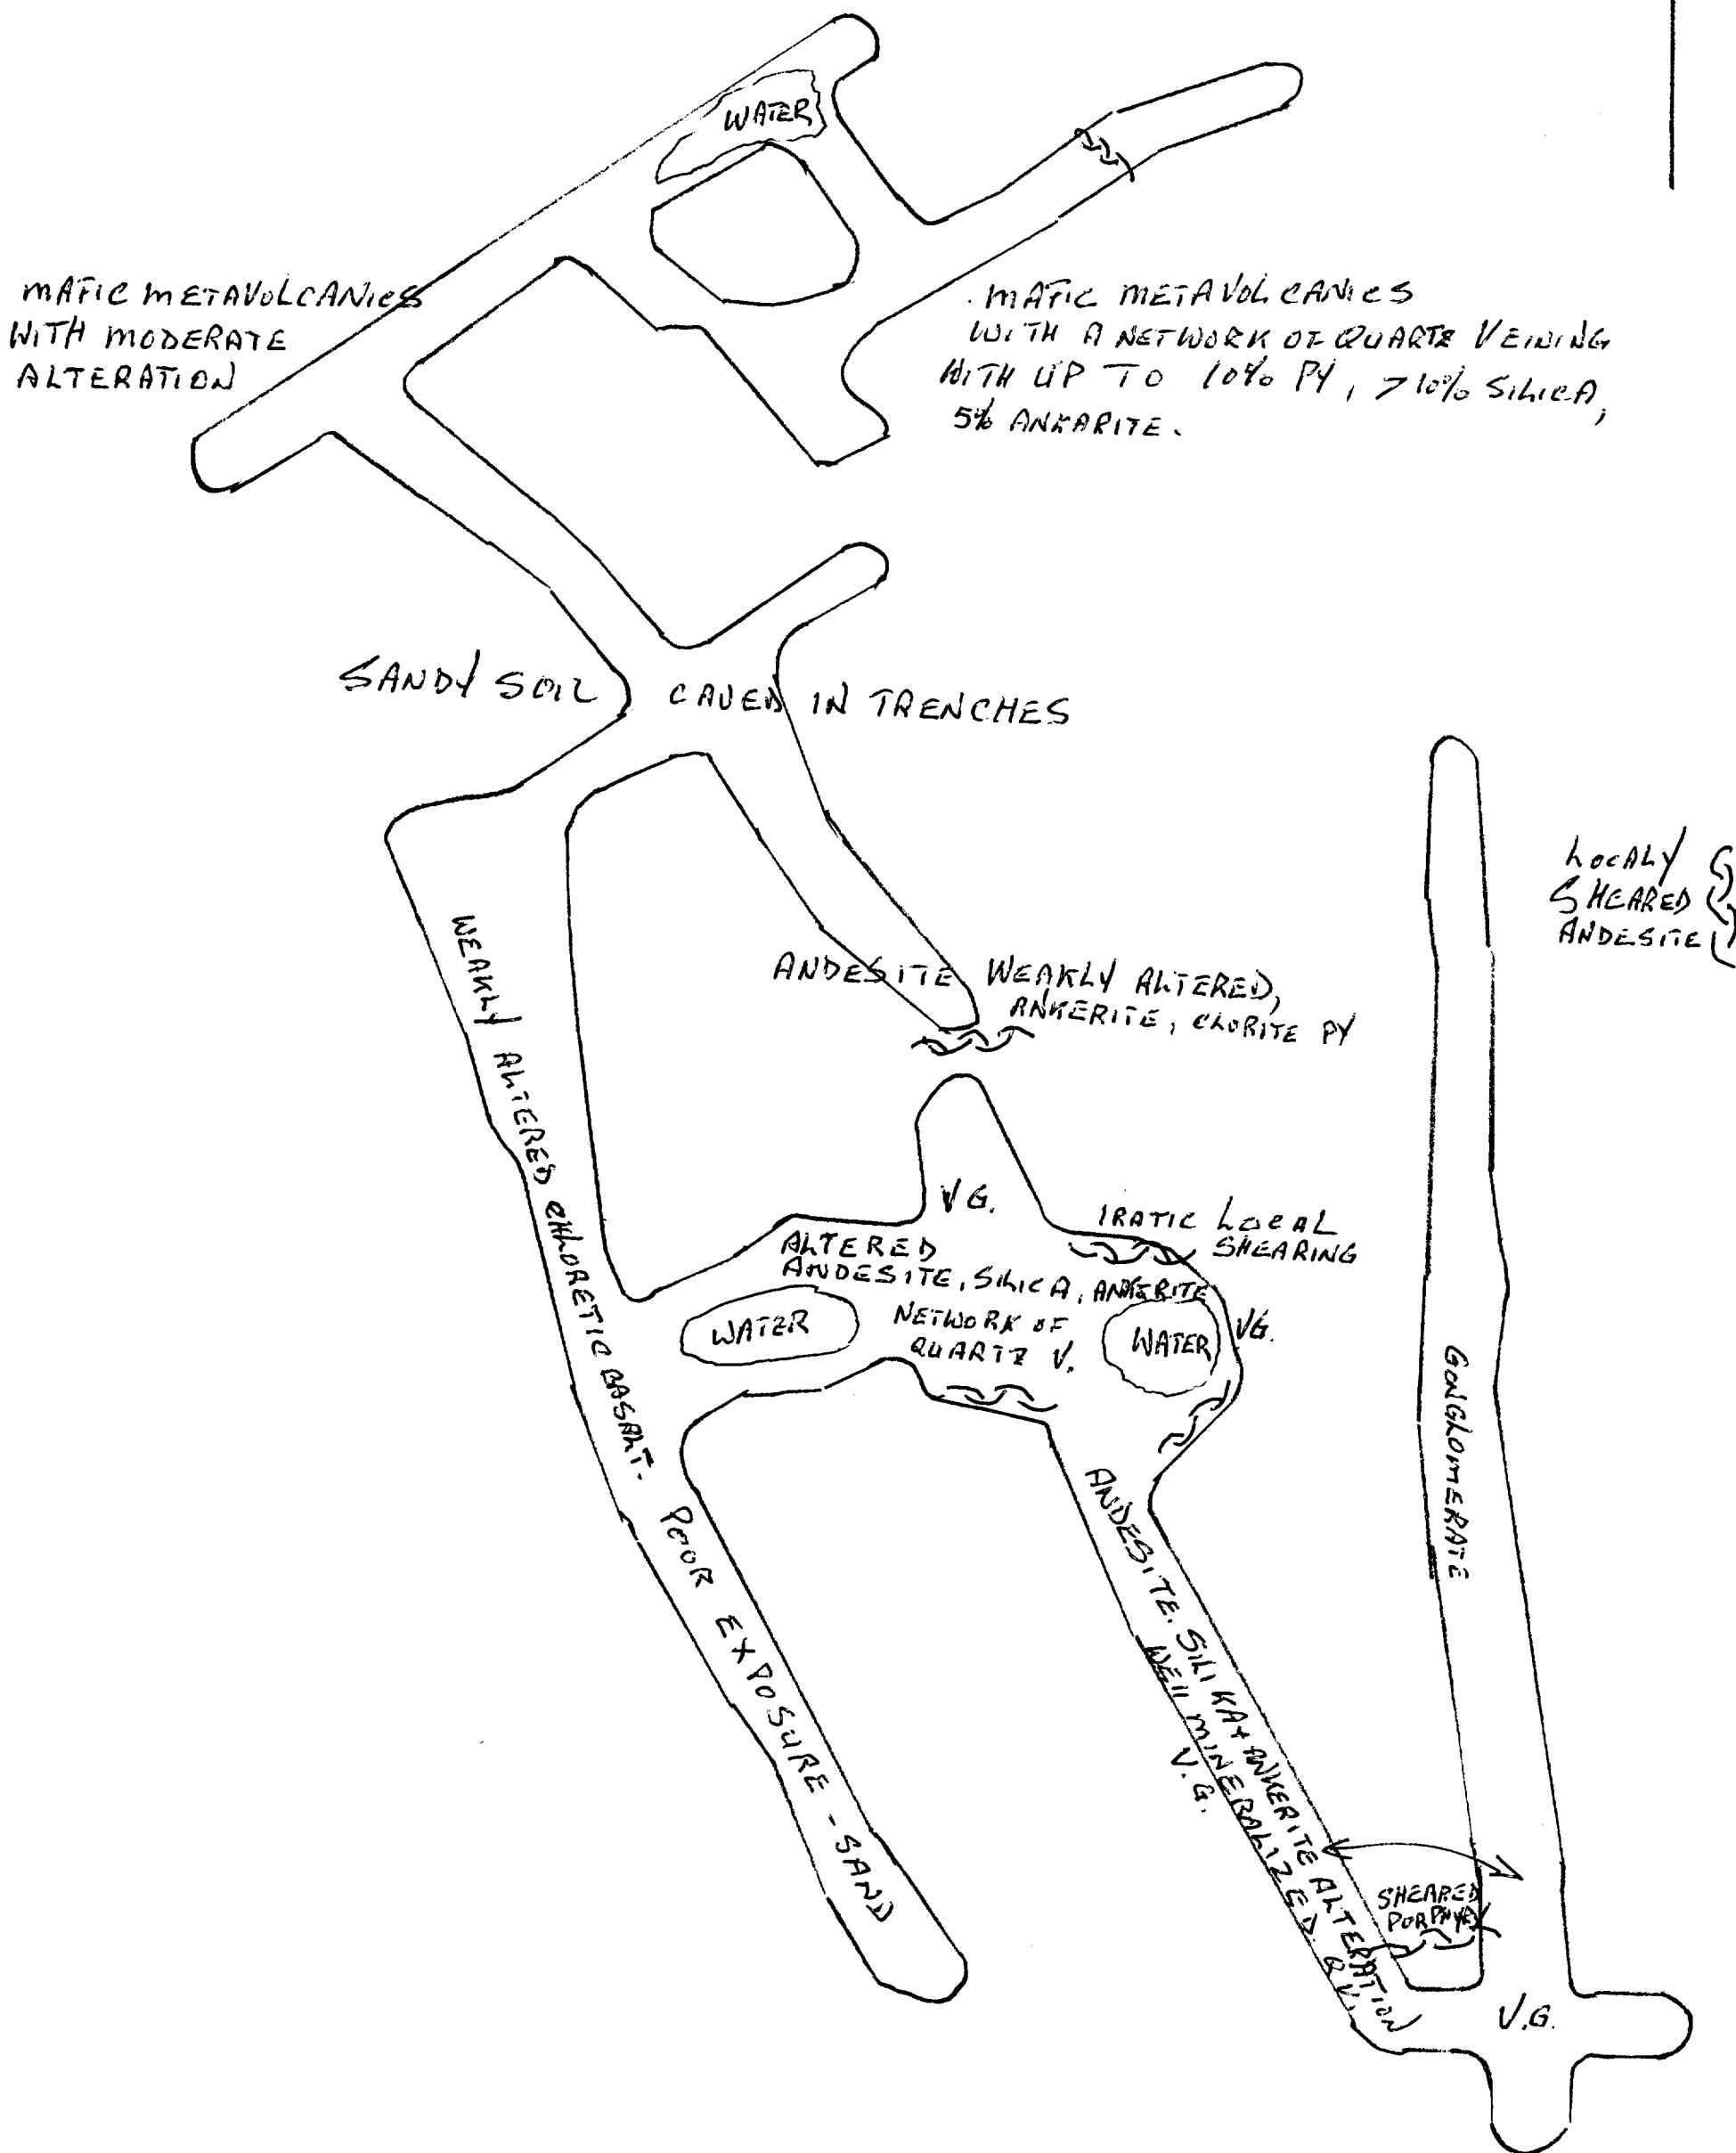 WATER
MAFIC METAVOLCANICS
WITH MODERATE
ALTERATION
MAFIC METAVOLCANICS
WITH A NETWORK OF QUARTZ VEINING
WITH UP TO 10% PY, >10% SILICA,
5% ANKARITE.
SANDY SOIL CAVED IN TRENCHES
LOCALY
SHEARED
ANDESITE
ANDESITE WEAKLY ALTERED,
ANKERITE, CLORITE PY
WEAKLY ALTERED CHLORETIC BASALT. POOR EXPOSURE - SAND
V.G.
IRATIC LOCAL
SHEARING
ALTERED
ANDESITE, SILICA, ANKERITE
NETWORK OF
QUARTZ V.
WATER
WATER
VG.
CONGLOMERATE
ANDESITE. SILIKA + ANKERITE ALTERATION
WELL MINERALIZED. Q.V.
V.G.
SHEARED
PORPHYRY
V.G.